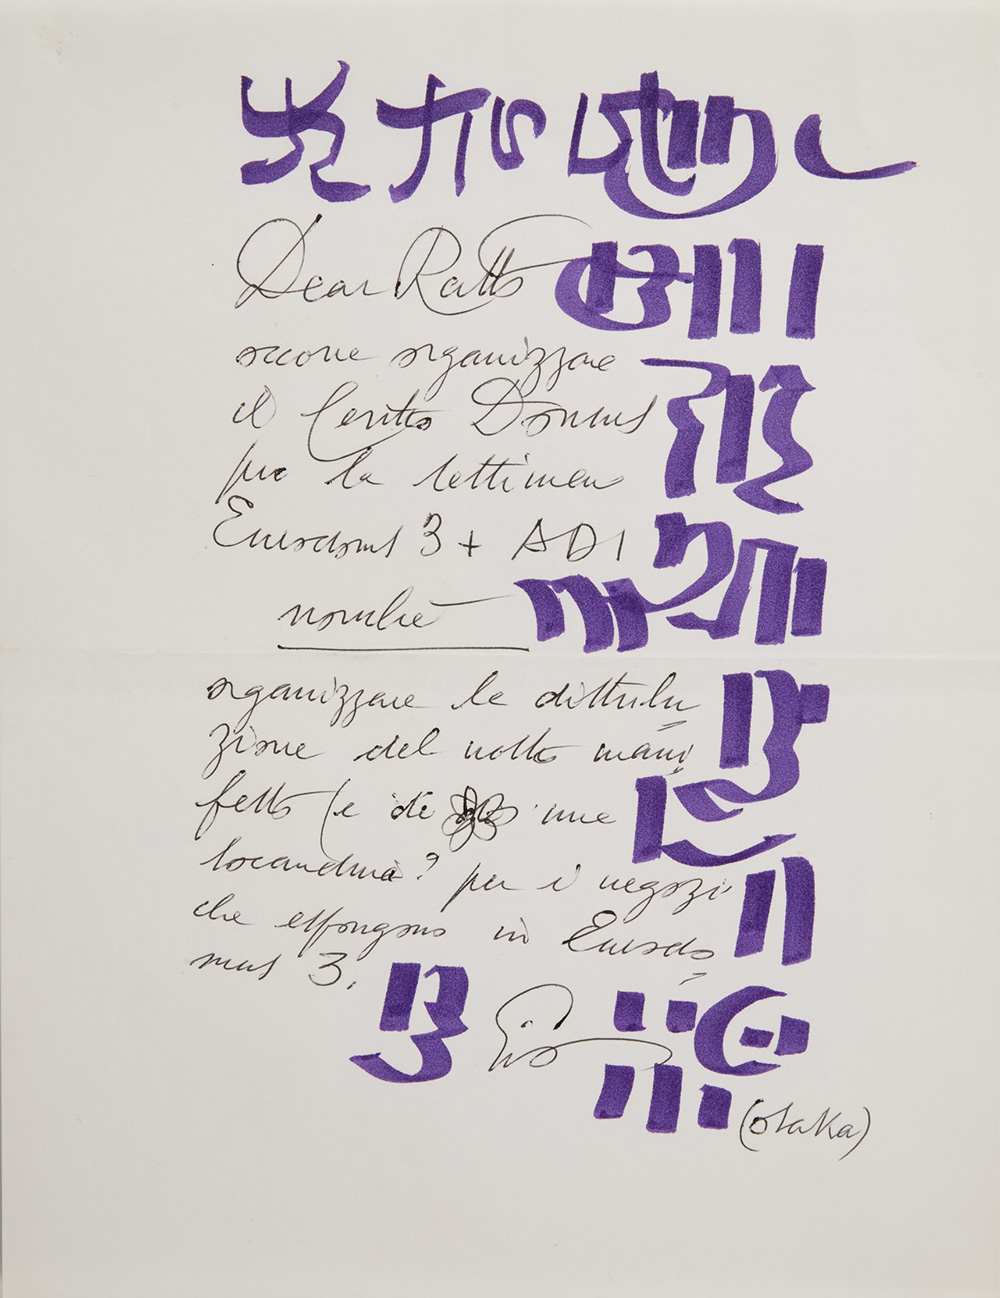 Dear Ratto
occorre organizzare
il Centro Domus
per la settimana
Eurodomus 3 + ADI
nonché
organizzare la distribu
zione del nostro mani
festo (e di una
locandina? per i negozi
che espongono in Eurodo
mus 3.
Gio
(osaka)